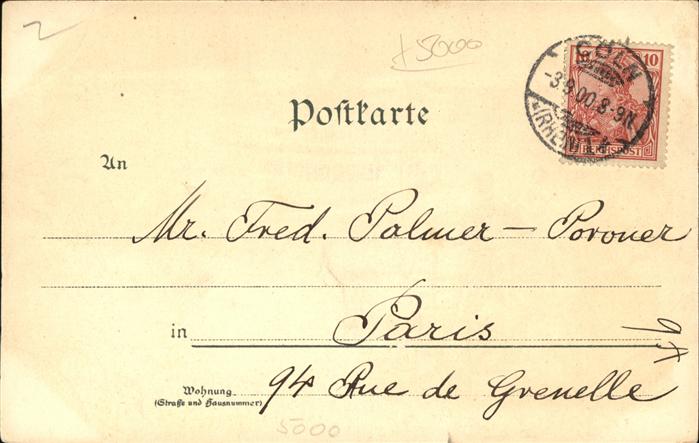 2
+5000
10
CÖLN
-3.9.00.8-9N.
(RHEIN) 1
REICHSPOST
Postkarte
An
Mr. Fred. Palmer - Povoner
in Paris
Wohnung
(Straße und Hausnummer)
94 Rue de Grenelle
5000